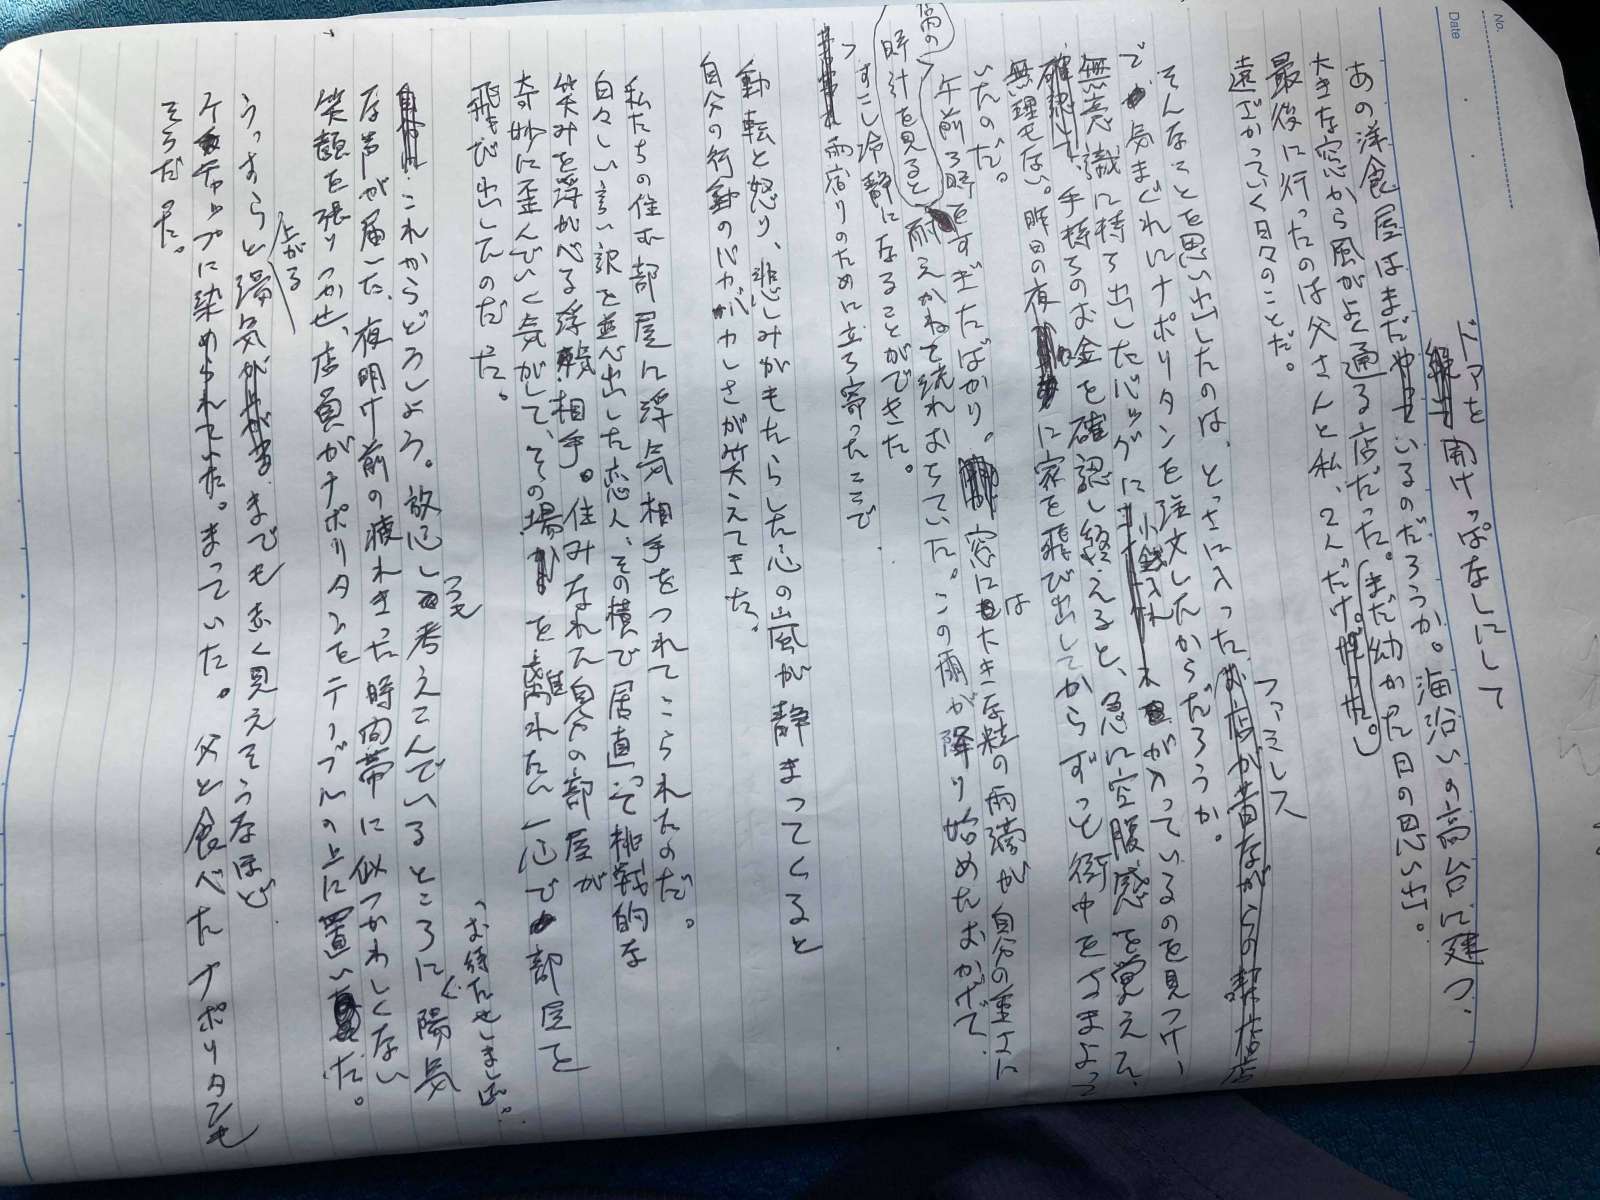 No.
Date
ドアを開けっぱなしにして
あの洋食屋はまだいるのだろうか。海沿いの高台に建つ、
大きな窓から風がよく通る店だった。まだ幼かった日の思い出。
最後に行ったのは父さんと私、2人だけ。
遠ざかっていく日々のことだ。
そんなことを思い出したのは、とっさに入ったファミレス
で気まぐれにナポリタンを注文したからだろうか。
無意識に持ち出したバッグに小銭入れが入っているのを見つけ、
手持ちのお金を確認し終えると、急に空腹感を覚えて、
無理もない。昨日の夜に家を飛び出してからずっと街中をさまよって
いたのだ。
午前3時をすぎたばかり。窓には大きな粒の雨滴が自分の重さに
耐えかねて流れおちていた。この雨が降り始めたおかげで、
店内の時計を見ると
すこし冷静になることができた。
雨宿りのために立ち寄ったここで
動転と怒り、悲しみがもたらした心の嵐が静まってくると
自分の行動のバカバカしさが笑えてきた。
私たちの住む部屋に浮気相手をつれてこられたのだ。
白々しい言い訳を並べ出した恋人、その横で居直って挑戦的な
笑みを浮かべる浮気相手。住みなれた自分の部屋が
奇妙に歪んでいく気がして、その場を離れたい一心で部屋を
飛び出してのだった。
「お待たせしました」
これからどうしよう。放心しつつも考えこんでいるところに陽気
な声が届いた。夜明け前の疲れきった時間帯に似つかわしくない
笑顔を張りつかせ、店員がナポリタンをテーブルの上に置いた。
うっすらと上がる湯気までも赤く見えそうなほど
ケチャップに染まっていた。父と食べたナポリタンも
そうだった。